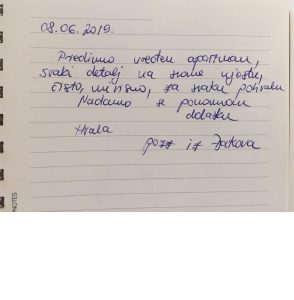 08.06.2019.
Predivno uređen apartman,
svaki detalj na svome mjestu,
čisto, mirisno, za svaku pohvalu
Nadamo se ponovnom
dolasku
Hvala
pozz iz Đakova
NOTES